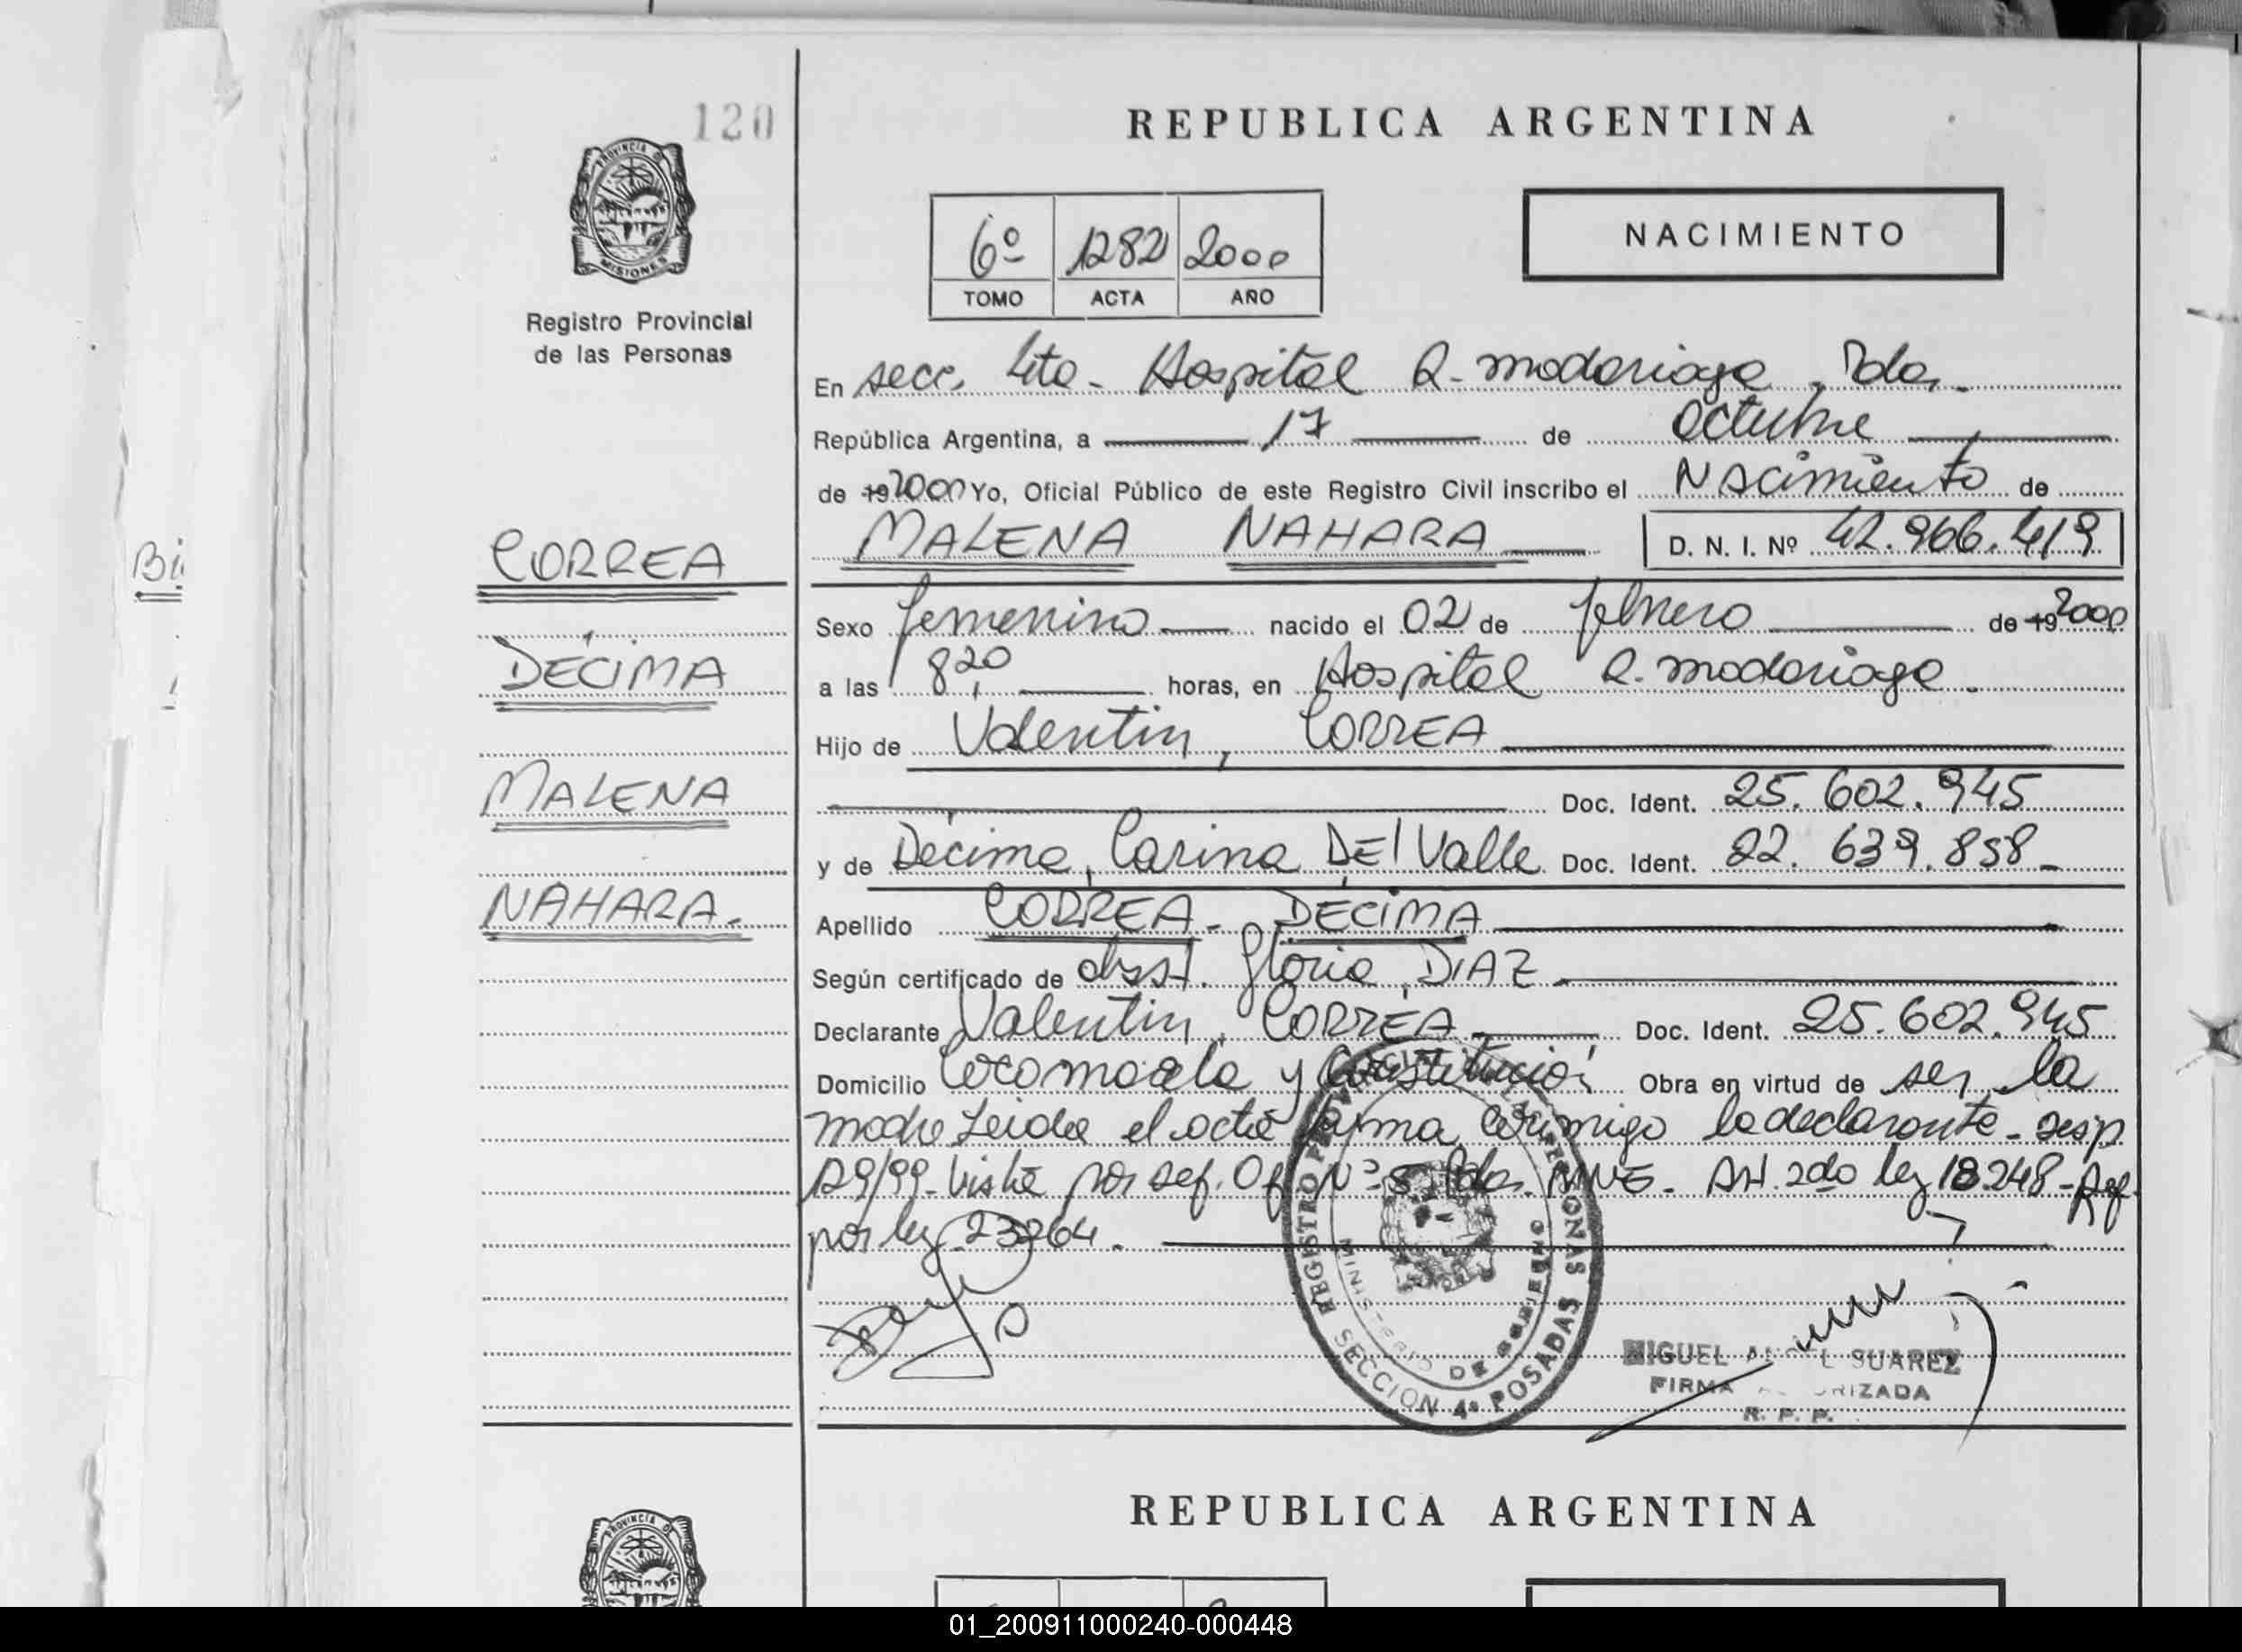 120
REPUBLICA ARGENTINA
PROVINCIA DE
MISIONES
6º 1282 2000
TOMO ACTA AÑO
NACIMIENTO
Registro Provincial
de las Personas
En secc. 4ta - Hospital R. madariaga, Pdas.
República Argentina, a 17 de octubre
de 19 2000 Yo, Oficial Público de este Registro Civil inscribo el Nacimiento de
CORREA
MALENA NAHARA D. N. I. Nº 42.966.419
Sexo femenino nacido el 02 de febrero de 19 2000
DÉCIMA
a las 8,20 horas, en Hospital R. madariaga.
Hijo de Valentin, CORREA
MALENA
Doc. Ident. 25.602.945
y de Décima, Carina DEl Valle Doc. Ident. 22.639.858
NAHARA.
Apellido CORREA - DÉCIMA
Según certificado de obst. Gloria DIAZ
Declarante Valentin, CORREA Doc. Ident. 25.602.945
Domicilio y Constitución Obra en virtud de ser la
madre Leida el acta firma conmigo la declarante - 
129/99 - por Of. Nº 8 Pdas. Art. 2do ley 18.248 -
por ley 23264.
REGISTRO PERSONAS
MINISTERIO DE GOBIERNO
SECCION 4ª POSADAS
MIGUEL SUAREZ
FIRMA
R. P. P.
REPUBLICA ARGENTINA
PROVINCIA DE
01_200911000240-000448